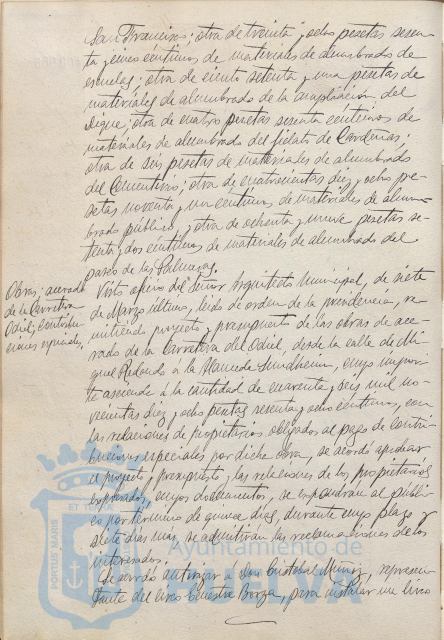 San Francisco; otra de treinta y ocho pesetas sesen-
ta y cinco céntimos de materiales de alumbrado de
escuelas; otra de ciento setenta y una pesetas de
materiales de alumbrado de la ampliación del
Dique; otra de cuatro pesetas sesenta céntimos de
materiales de alumbrado del fielato de Cardenas;
otra de seis pesetas de materiales de alumbrado
del Cementerio; otra de cuatrocientas diez y ocho pe-
setas noventa y un céntimos de materiales de alum-
brado público, y otra de ochenta y nueve pesetas se-
tenta y dos céntimos de materiales de alumbrado del
paseo de las Palmeras.
Obras; acerado
de la Carretera
Odiel; contribu-
ciones especiales.
Visto oficio del Señor Arquitecto Municipal, de siete
de Marzo último, leido de orden de la presidencia, re-
mitiendo proyecto y presupuesto de las obras de ace-
rado de la Carretera del Odiel, desde la calle de Mi-
guel Redondo a la Alameda Sundheim, cuyo impor-
te asciende a la cantidad de cuarenta y seis mil no-
vecientas diez y ocho pesetas sesenta y ocho céntimos, con
las relaciones de propietarios obligados al pago de contri-
buciones especiales por dicha obra, se acordó aprobar
el proyecto y presupuesto y las relaciones de los propietarios
expresados, cuyos documentos, se expondrán al públi-
co por término de quince dias, durante cuyo plazo y
siete dias mas, se admitirán las reclamaciones de los
interesados.
Se acordó autorizar a Don Cristobal Muñoz, represen-
tante del Circo Ecuestre Borza, para instalar un Circo
PORTUS MARIS ET TERRAE
Ayuntamiento de
HUELVA